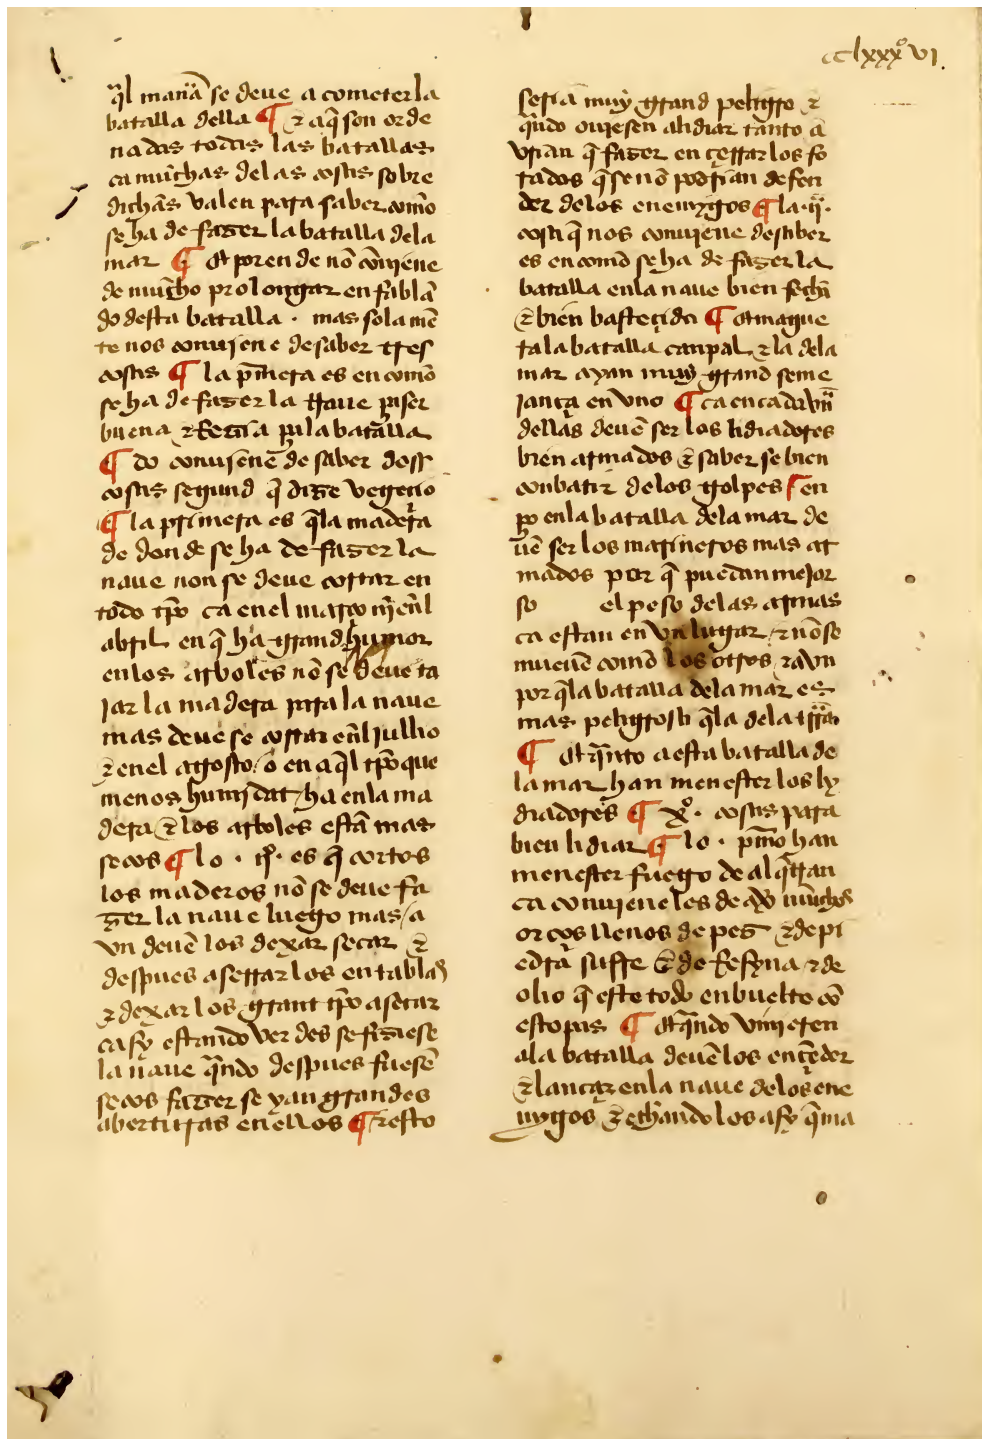 cclxxxº vi
q̃l manã se deue acometer la
batalla della ¶ ⁊ aq̃ son orde
nadas todas las batallas
ca muchas delas cosas sobre
dichãs valen para saber como
se ha de fazer la batalla dela
mar ¶ Et por ende nõ cõuiene
de mucho prolongar en fablã
do desta batalla · mas sola mẽ
te nos conuiene de saber tres
cosas ¶ la pͥmera es en como
se ha de fazer la naue pa ser
buena ⁊ Rezia pa la batalla
¶ do conuienẽ de saber dos
cosas segund q̃ dize vegecio
¶ la primera es q̃ la madera
de donde se ha de fazer la
naue non se deue cortar en
todo tp̃o ca en el março nĩ enl
abril en q̃ ha grand humor
en los arboles nõ se deue ta
jar la madera para la naue
mas deue se cortar enl julho
⁊ en el agosto o en aq̃l tp̃o que
menos humidat ha en la ma
dera ⁊ los arboles estã mas
secos ¶ lo · ijº · es q̃ cortos
los maderos nõ se deue fa
zer la naue luego mas a
vn deuẽ los dexar secar ⁊
despues aserrar los en tablas
⁊ dexar los grant tp̃o a secar
ca sy estando verdes se fiziese
la naue q̃ndo despues fuesẽ
secos fazer se yan grandes
aberturas en ellos ¶ ⁊ esto
seria muy grand peligro ⁊
q̃ndo ouiesen alidiar tanto ã
vrian q̃ fazer en çerrar los fo
rados q̃ se nõ podrian defen
der delos enemygos ¶ la · ijª ·
cosa q̃ nos conuiene de saber
es en comõ se ha de fazer la
batalla enla naue bien fechã
⁊ bien basteçida ¶ Et maguer
ta la batalla canpal ⁊ la dela
mar ayan muy grand seme
jança en vno ¶ ca en cada vñ
dellãs deuẽ ser los lidiadores
bien armados ⁊ saber se bien
conbatir delos golpes ¶ en
po enla batalla dela mar de
uẽ ser los marineros mas ar
mados por q̃ puedan mejor
so el peso delas armas
ca estan en vn lugar ⁊ nõ se
mueuẽ comõ los otros ⁊ avn
por q̃ la batalla dela mar es
mas peligrosa q̃ la dela trr̃a
¶ Et q̃nto a esta batalla de
la mar han menester los ly
diadores ¶ xº · cosas para
bien lidiar ¶ lo · pͥmo han
menester fuego de alq̃tran
ca conuiene les de auer muchos
orcos llenos de pez ⁊ de pi
edrã sufre ⁊ de Resyna ⁊ de
olio q̃ este todo enbuelto cõ
estopas ¶ Et q̃ndo vinieren
ala batalla deuẽ los ençẽder
⁊ lançar en la naue delos ene
mygos ⁊ echando los asy q̃ma